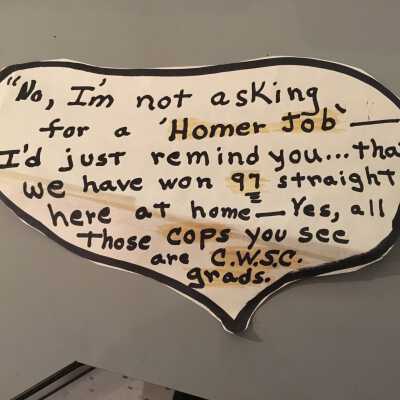 "No, I'm not asking
for a 'Homer Job' —
I'd just remind you... that
we have won 97 straight
here at home — Yes, all
those COPS you see
are C.W.S.C.
grads.